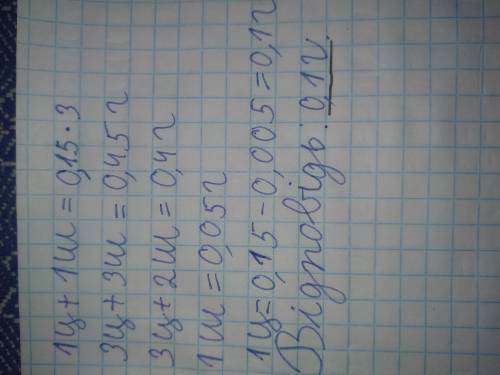 1ц + 1ш = 0,15 · 3
3ц + 3ш = 0,45 г
3ц + 2ш = 0,4 г
1ш = 0,05 г
1ц = 0,15 - 0,005 = 0,1 г
Відповідь: 0,1 г.